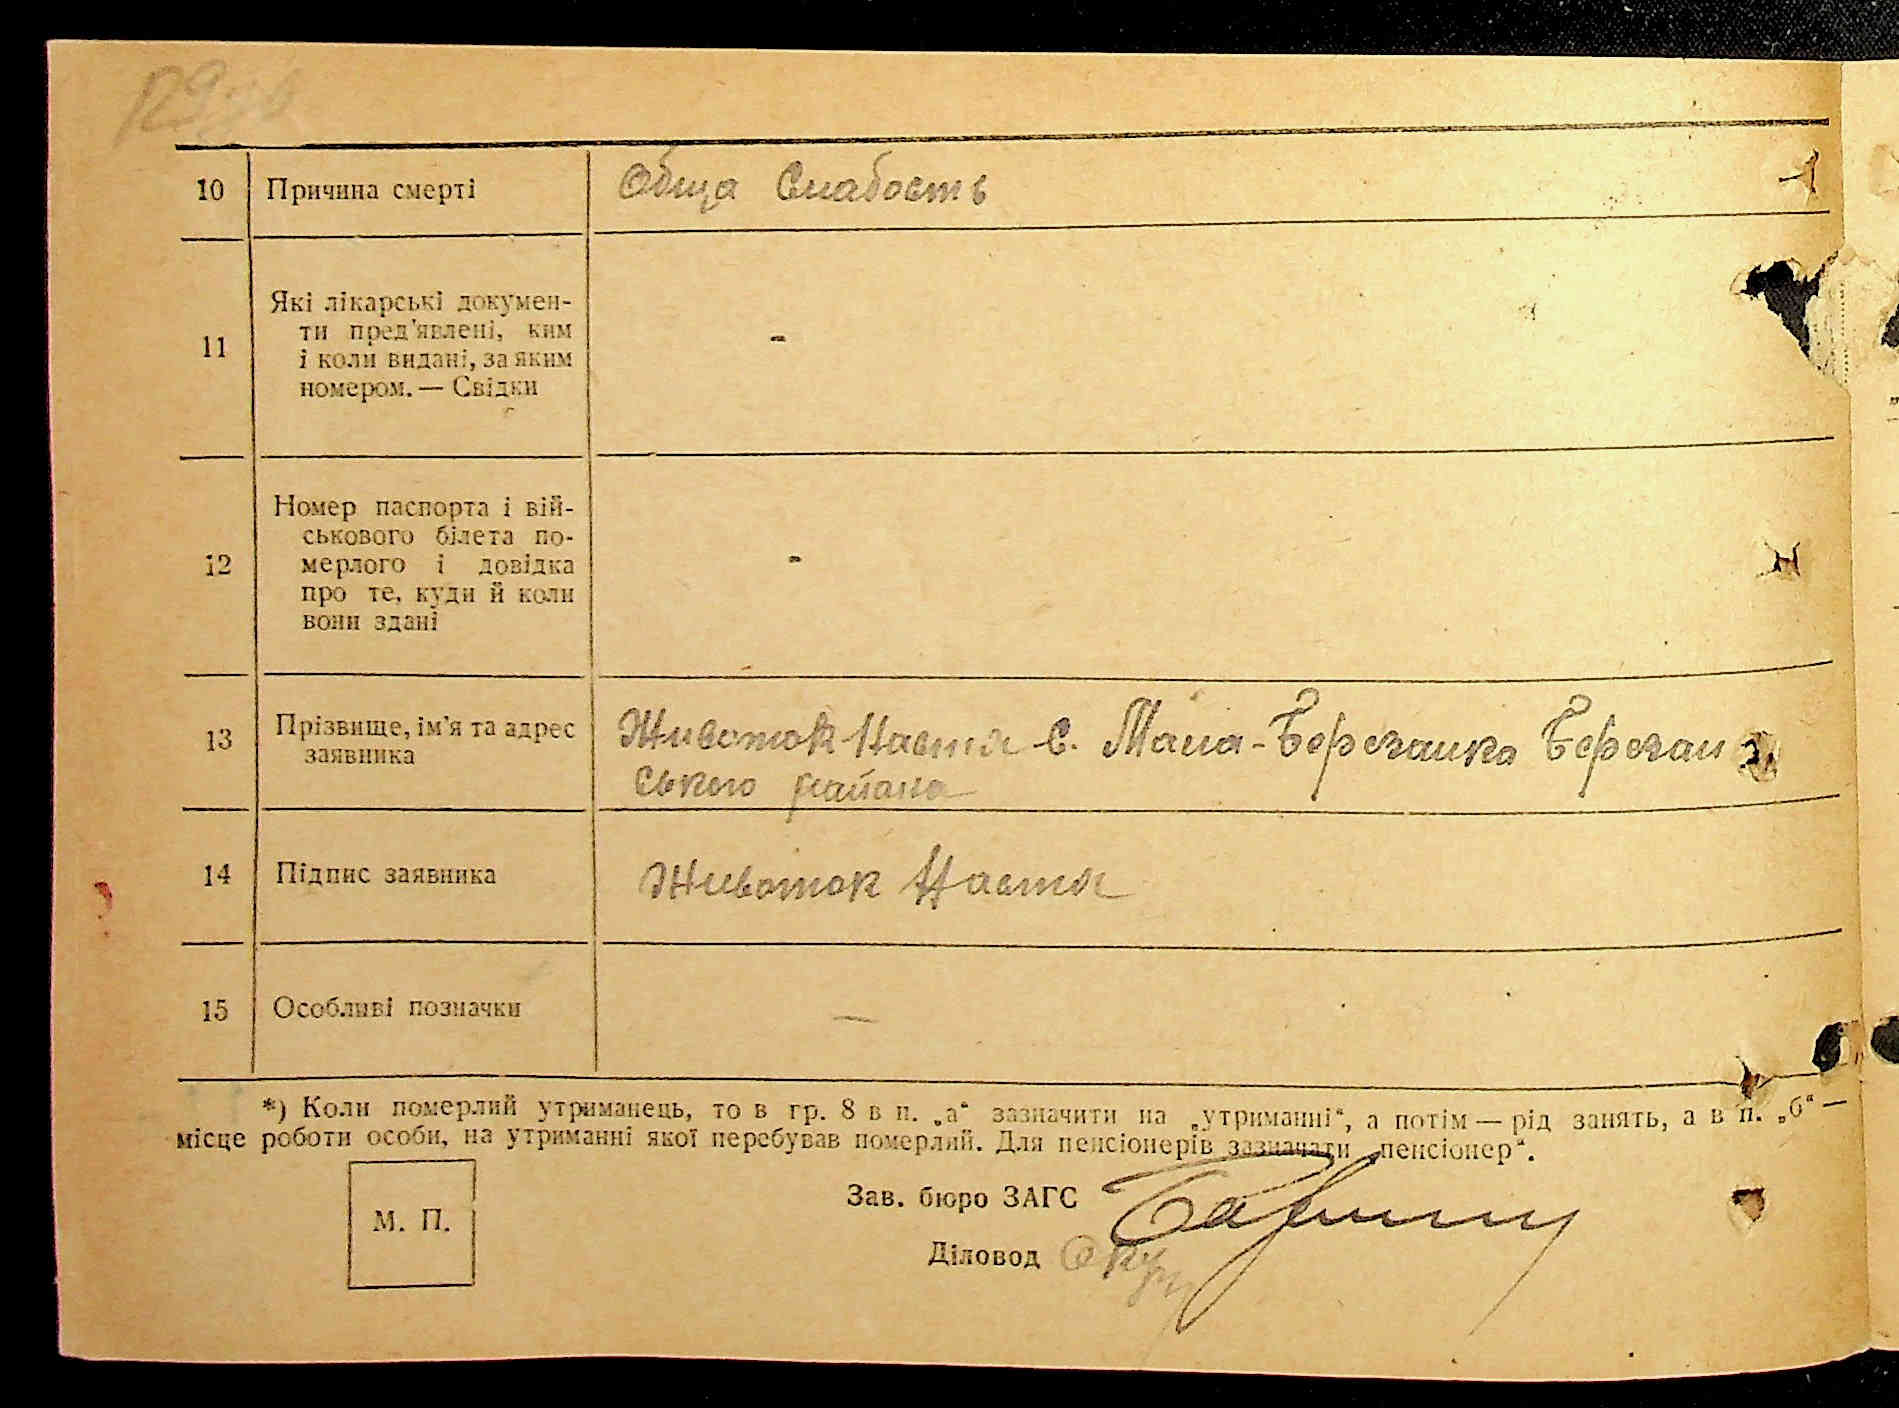 10 Причина смерті Обща Слабость
11 Які лікарські докумен-
ти пред'явлені, ким
і коли видані, за яким
номером. — Свідки -
12 Номер паспорта і вій-
ськового білета по-
мерлого і довідка
про те, куди й коли
вони здані -
13 Прізвище, ім'я та адрес
заявника
Животок Настя с. Мала-Березанка Березан
ського района
14 Підпис заявника Животок Настя
15 Особливі позначки —
*) Коли померлий утриманець, то в гр. 8 в п. „а“ зазначити на „утриманні“, а потім — рід занять, а в п. „б“ —
місце роботи особи, на утриманні якої перебував померлий. Для пенсіонерів зазначати „пенсіонер“.
М. П.
Зав. бюро ЗАГС
Діловод